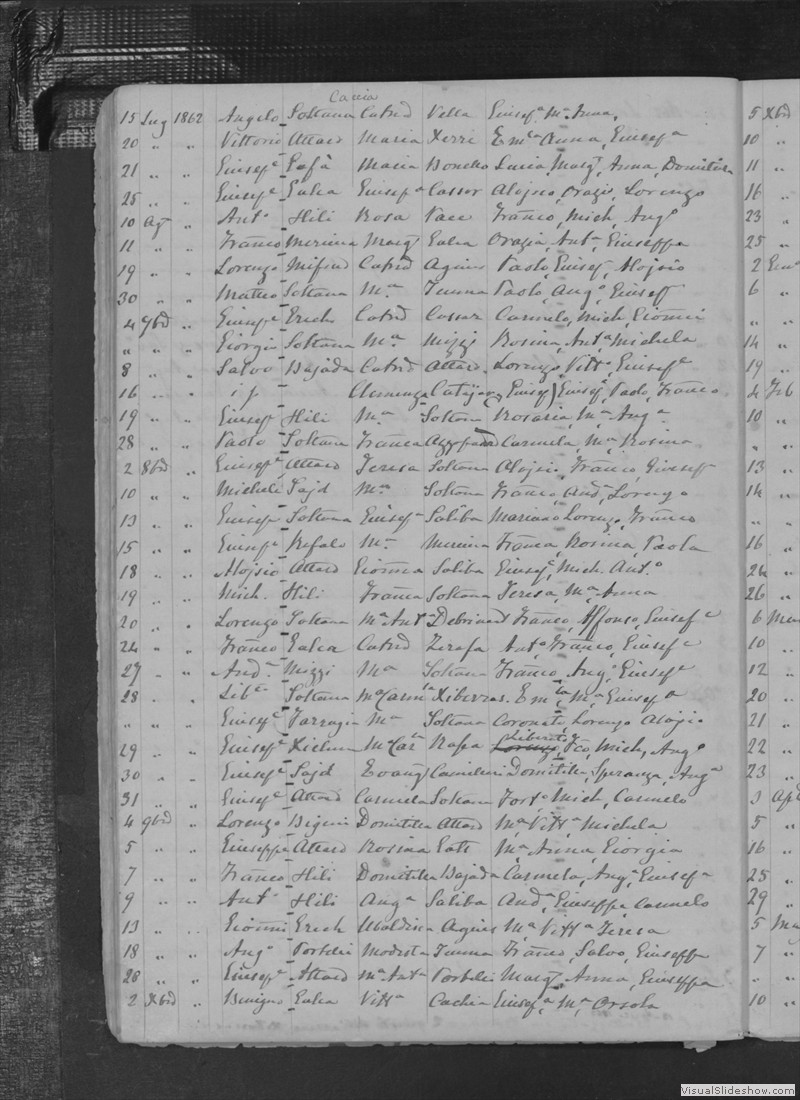 Cacċia
15 Lug 1862 Angelo Soltana Catrd Vella Giusepa Ma Anna,
20 " " Vittorio Attard Maria Xerri Emla Anna, Giusepa
21 " " Giusepe Maria Lucia Margt, Anna, Domitilla
25 " " Giusepe Galea Giusepa Cassar Alojsio, Orazio, Lorenzo
10 Ag " Anto Hili Rosa Pace Franco, Mich, Ango
11 " " Franco Mercieca Margt Galea Orazia, Anta, Giuseppa
19 " " Lorenzo Mifsud Catrd Agius Paolo, Giusep, Alojsio
30 " " Matteo Soltana Ma Tumna Paolo, Ango, Giusepp
4 7bre " Giusepe Grech Catrd Cassar Carmelo, Mich, Gionni
" " " Giorgio Soltana Ma Mizzi Rosina, Anta Michela
8 " " Salvo Bajada Catrd Attard Lorenzo, Vitto, Giusepe
16 " " Clemenza Giusepe, Paolo, Franco
19 " " Giusepe Hili Ma Soltana Rosaria, Ma Anga
28 " " Paolo Soltana Franca Azzopardi Carmela, Ma, Rosina
2 8bre " Giusepe Attard Teresa Soltana Alojsio, Franco, Giusepe
10 " " Michele Sajd Ma Soltana Franco, Anda, Lorenzo
13 " " Giusepe Soltana Giusepa Saliba Mariano Lorenzo, Franco
15 " " Giusepe Refalo Ma Mercieca Franca, Rosina, Paola
18 " " Alojsio Attard Gionna Saliba Giusepe, Mich. Anto
19 " " Mich. Hili Franca Soltana Teresa, Ma Anna
20 " " Lorenzo Soltana Ma Anta Debrincat Franco, Alfonso, Giusepe
24 " " Franco Galea Catrd Zerafa Anto, Franco, Giusepe
27 " " Anda Mizzi Ma Soltana Franco, Ango, Giusepe
28 " " Soltana Ma Carmla Xiberras. Emla, Ma, Giusepa
" " " Giusepe Farrugia Ma Soltana Coronato Lorenzo Alojsio
Liberato
29 " " Giusepe Xicluna Ma Car Rapa Lorenzo, Fco, Mich, Ango
30 " " Giusepe Sajd Evang Camilleri Domitilla, Speranza, Anga
31 " " Giusepe Attard Carmela Soltana Forto, Mich, Carmelo
4 9bre " Lorenzo Domitilla Attard Ma, Vitta Michela
5 " " Giuseppe Attard Rosina Gatt Ma, Anna, Giorgia
7 " " Franco Hili Domitilla Bajada Carmela, Anga, Giusepa
9 " " Anto Hili Anga Saliba Anda, Giuseppe, Carmelo
13 " " Gionni Grech Ubaldina Agius Ma, Vitta, Teresa
18 " " Ango Portelli Modesta Tumna Franco, Salvo, Giuseppe
26 " " Giusepe Attard Ma Anta Portelli Margt, Anna, Giuseppa
2 Xbre " Benigno Galea Vitta Cachia Giusepa, Ma, Orsola
5 Xbr
10 "
11 "
16 "
23 "
25 "
2
6 "
" "
14 "
19 "
4 Feb
10 "
" "
13 "
14 "
" "
16 "
24 "
26 "
6 Mar
10 "
12 "
20 "
21 "
22 "
23 "
3 Apl
5 "
16 "
25 "
29 "
5 Ma
7 "
" "
10 "
VisualSlideshow.com